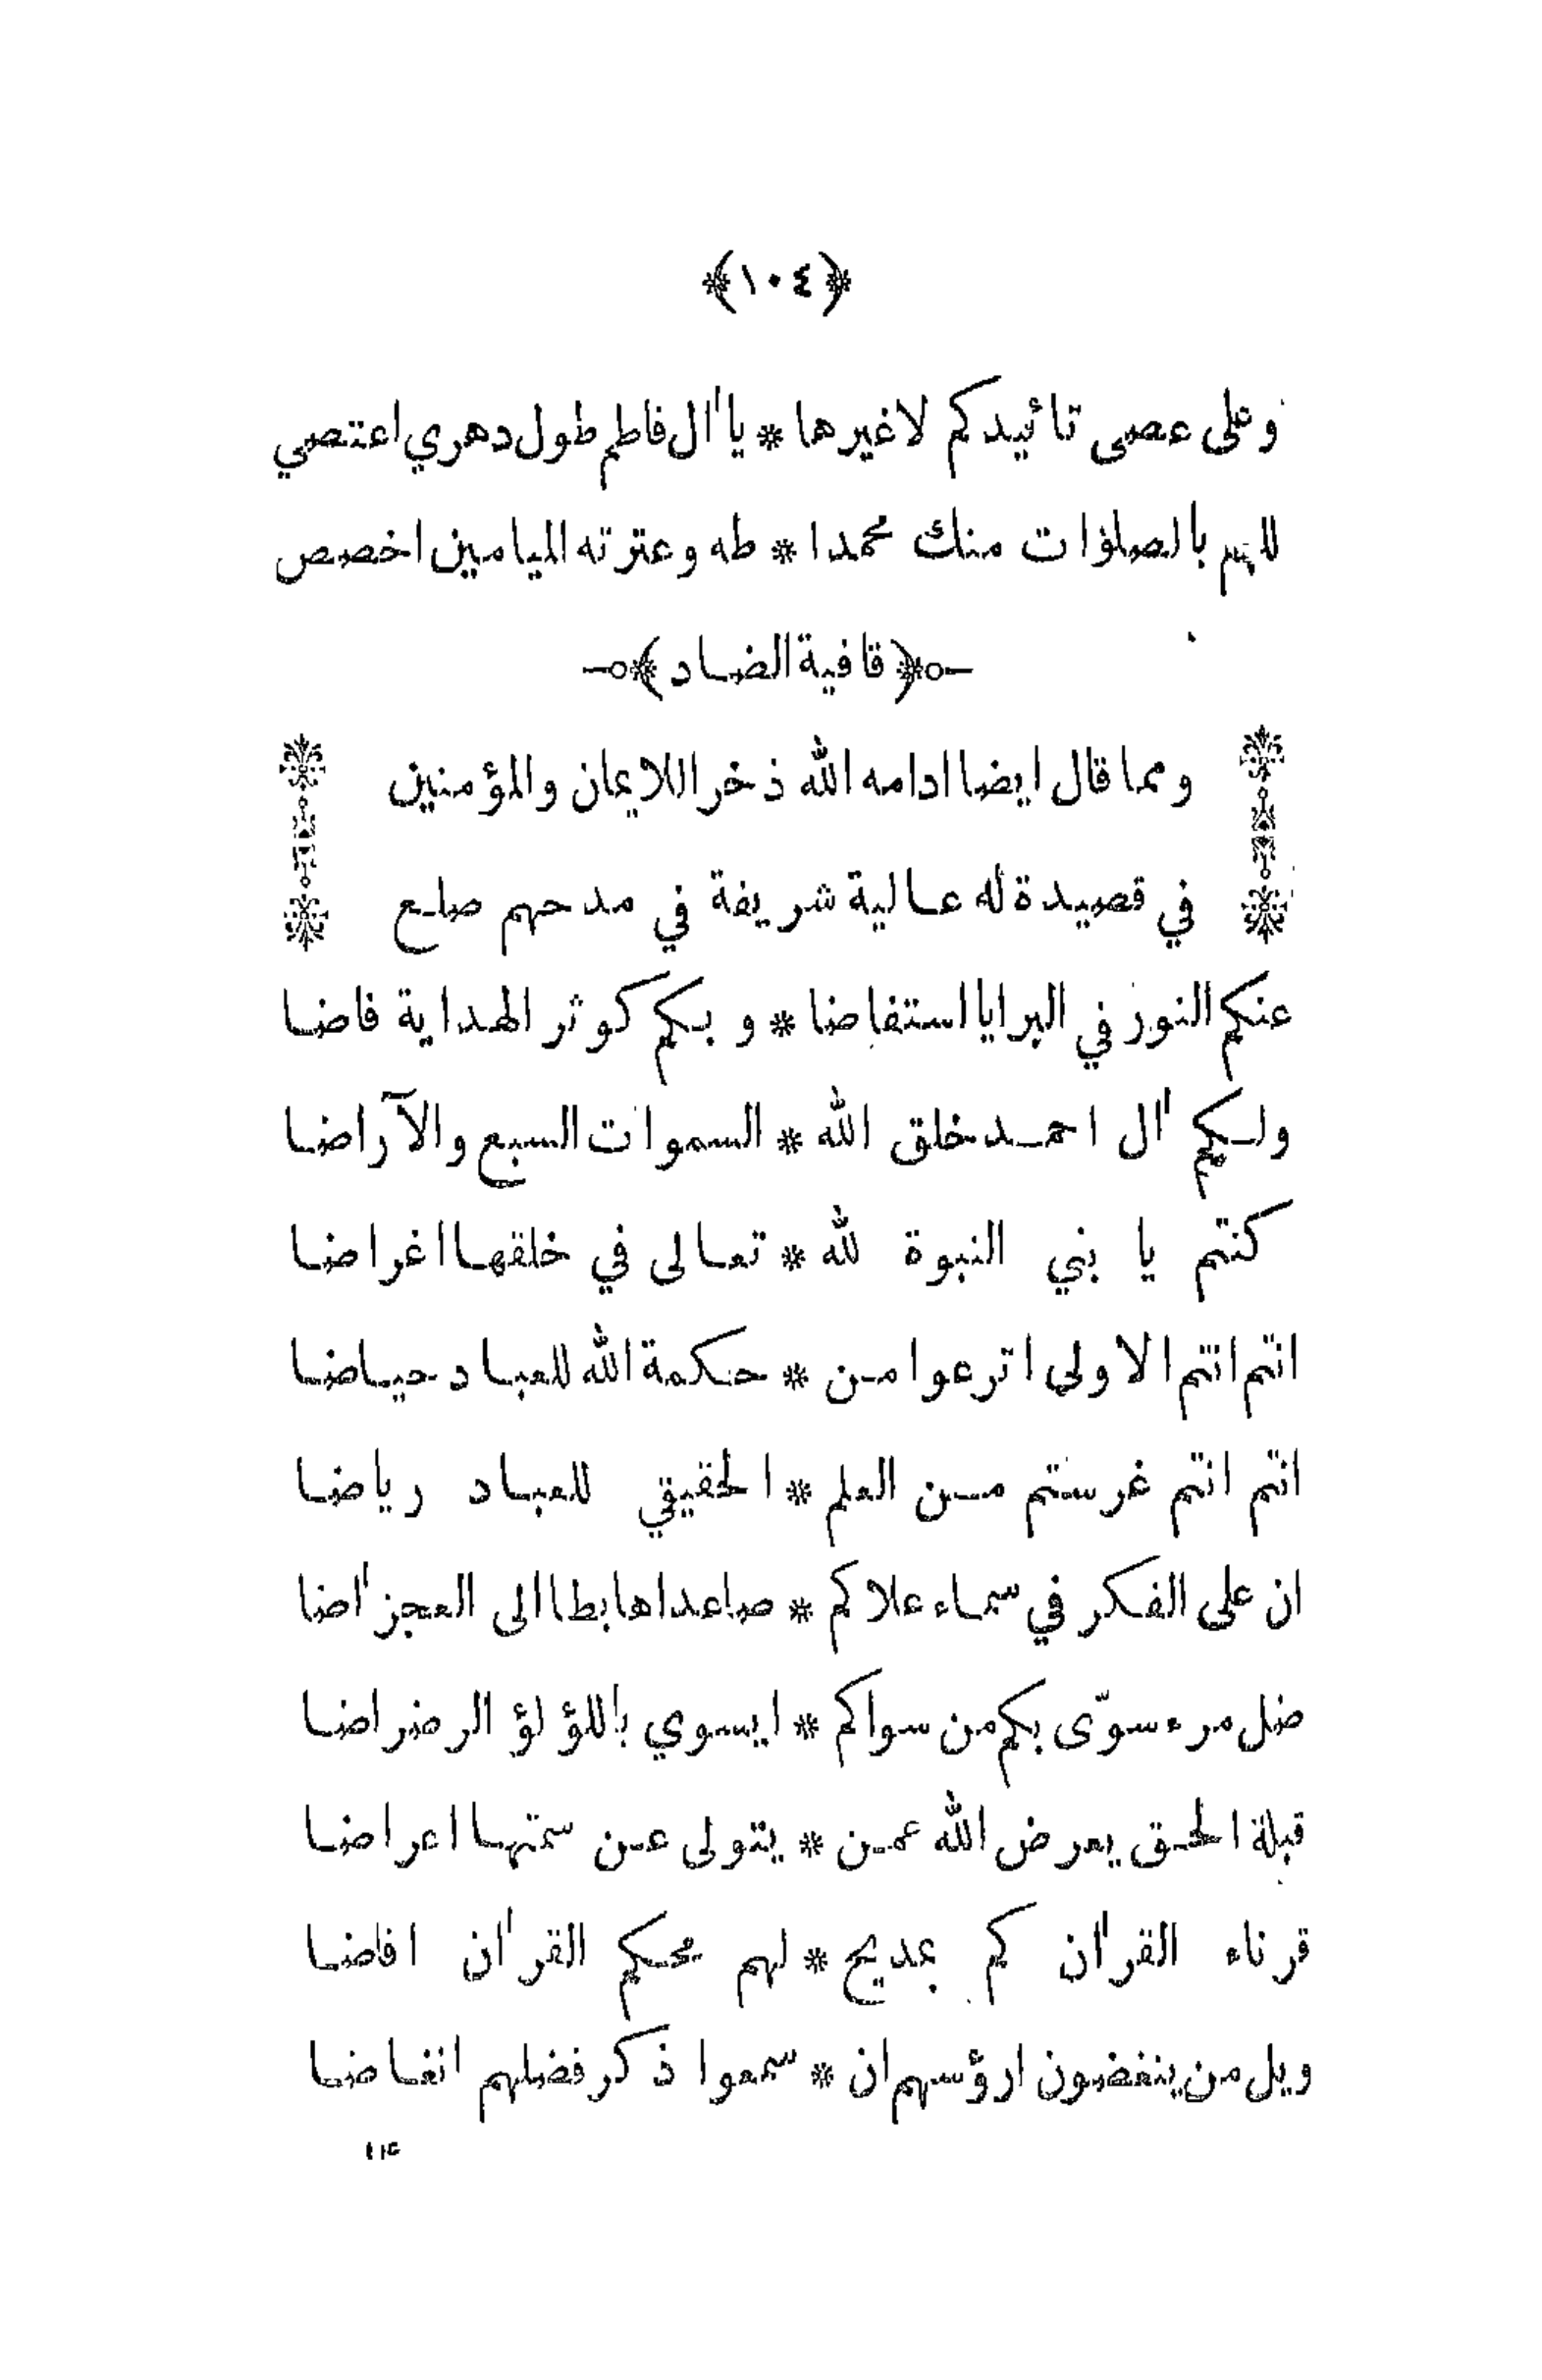 ﴿١٠٤﴾
وعلى عصى تائيدكم لاغيرها * يا اٰل فاطم طول دهري اعتصي
للهم بالصلوٰات منك محمدا * طه وعترته الميامين اخصص
﴿قافية الضاد﴾
ومما قال ايضا ادامه الله ذخرا للايمان والمؤمنين
في قصيدة له عالية شريفة في مدحهم صلع
عنكم النور في البرايا استفاضا * وبكم كوثر الهداية فاضا
ولكم اٰل احمد خلق الله * السموات السبع والآراضا
كنتم يا بني النبوة لله * تعالى في خلقها اغراضا
انتم انتم الاولى اترعوا من * حكمة الله للعباد حياضا
انتم انتم غرستم من العلم * الحقيقي للعباد رياضا
ان على الفكر في سماء علاكم * صاعدا هابطا الى العجز اٰضا
ضل مرء سوّى بكم من سواكم * ايسوي باللؤلؤ الرضراضا
قبلة الحق يعرض الله عمن * يتولى عن سمتها اعراضا
قرناء القراٰن كم بمديح * لهم محكم القراٰن افاضا
ويل من ينغضون ارؤسهم ان * سمعوا ذكر فضلهم انغاضا